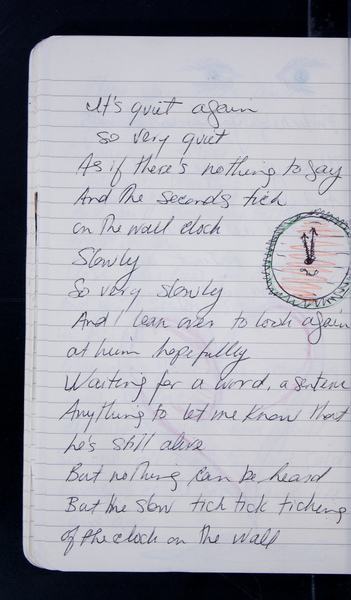 It's quiet again
So very quiet
As if there's nothing to say
And the seconds tick
on the wall clock
Slowly
So very slowly
And I lean over to look again
at him hopefully
Waiting for a word, a sentence
Anything to let me know that
he's still alive
But nothing can be heard
But the slow tick tick ticking
of the clock on the wall